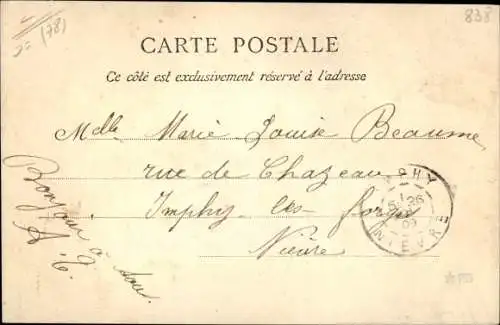 (78)
2=
838
CARTE POSTALE
Ce côté est exclusivement réservé à l'adresse
Mdlle Marie Louise Beaume
rue de Chazeau
Imphy les forges
Nièvre
Bonjour à tous
A. C.
IMPHY
NIEVRE